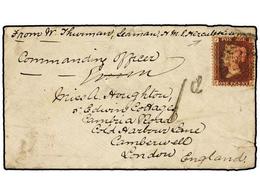 From W. Thurman, Seaman, H.M.S. Hercules
Commanding Officer
Miss A. Houghton
5 Edwin Cottages
Cambria Road
Cold Harbour Lane
Camberwell
London
England
1d